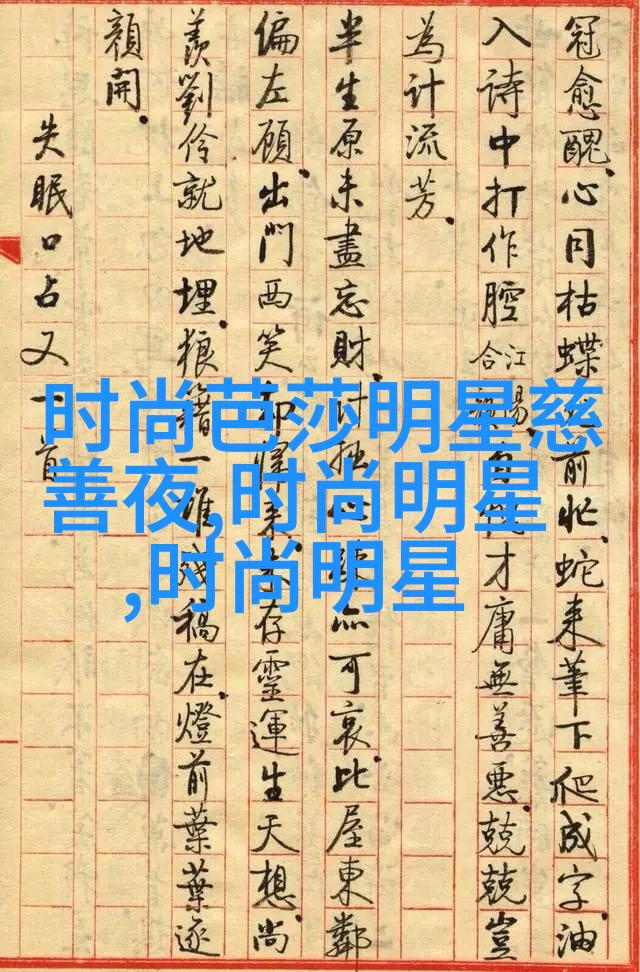 冠愈醜。心同枯蝶前忙。蛇来筆下爬成字。油
入詩中打作腔江陽合自才庸無善惡。兢兢豈
為計流芳。
半生原未盡忘財。計拙心亦可哀。比屋東鄰
偏左顧。出門西笑却来。存靈運生天想。尚
羨劉伶就地埋。狼籍一堆残稿在。燈前葉葉逐
顏開。
失眠口占又一首
时尚芭莎明星慈
善夜,时尚明星
,时尚明星